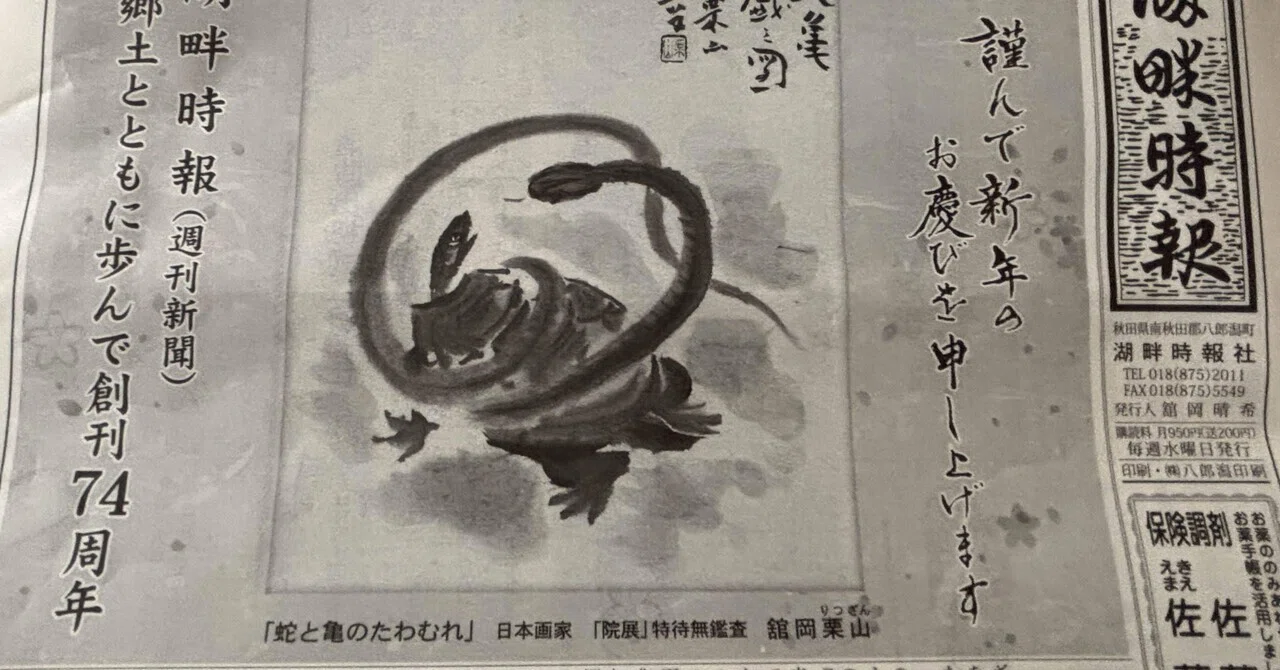 湖畔時報
秋田県南秋田郡八郎潟町
湖畔時報社
TEL 018(875)2011
FAX 018(875)5549
発行人 舘岡晴希
購読料 月950円(送200円)
毎週水曜日発行
印刷・㈱八郎潟印刷
保険調剤
お薬手帳を活用しま
えき
まえ
佐佐
謹んで新年の
お慶びを申し上げます
戯之図
栗山
「蛇と亀のたわむれ」 日本画家 「院展」特待無鑑査 舘岡栗山
りつざん
湖畔時報(週刊新聞)
郷土とともに歩んで創刊74周年